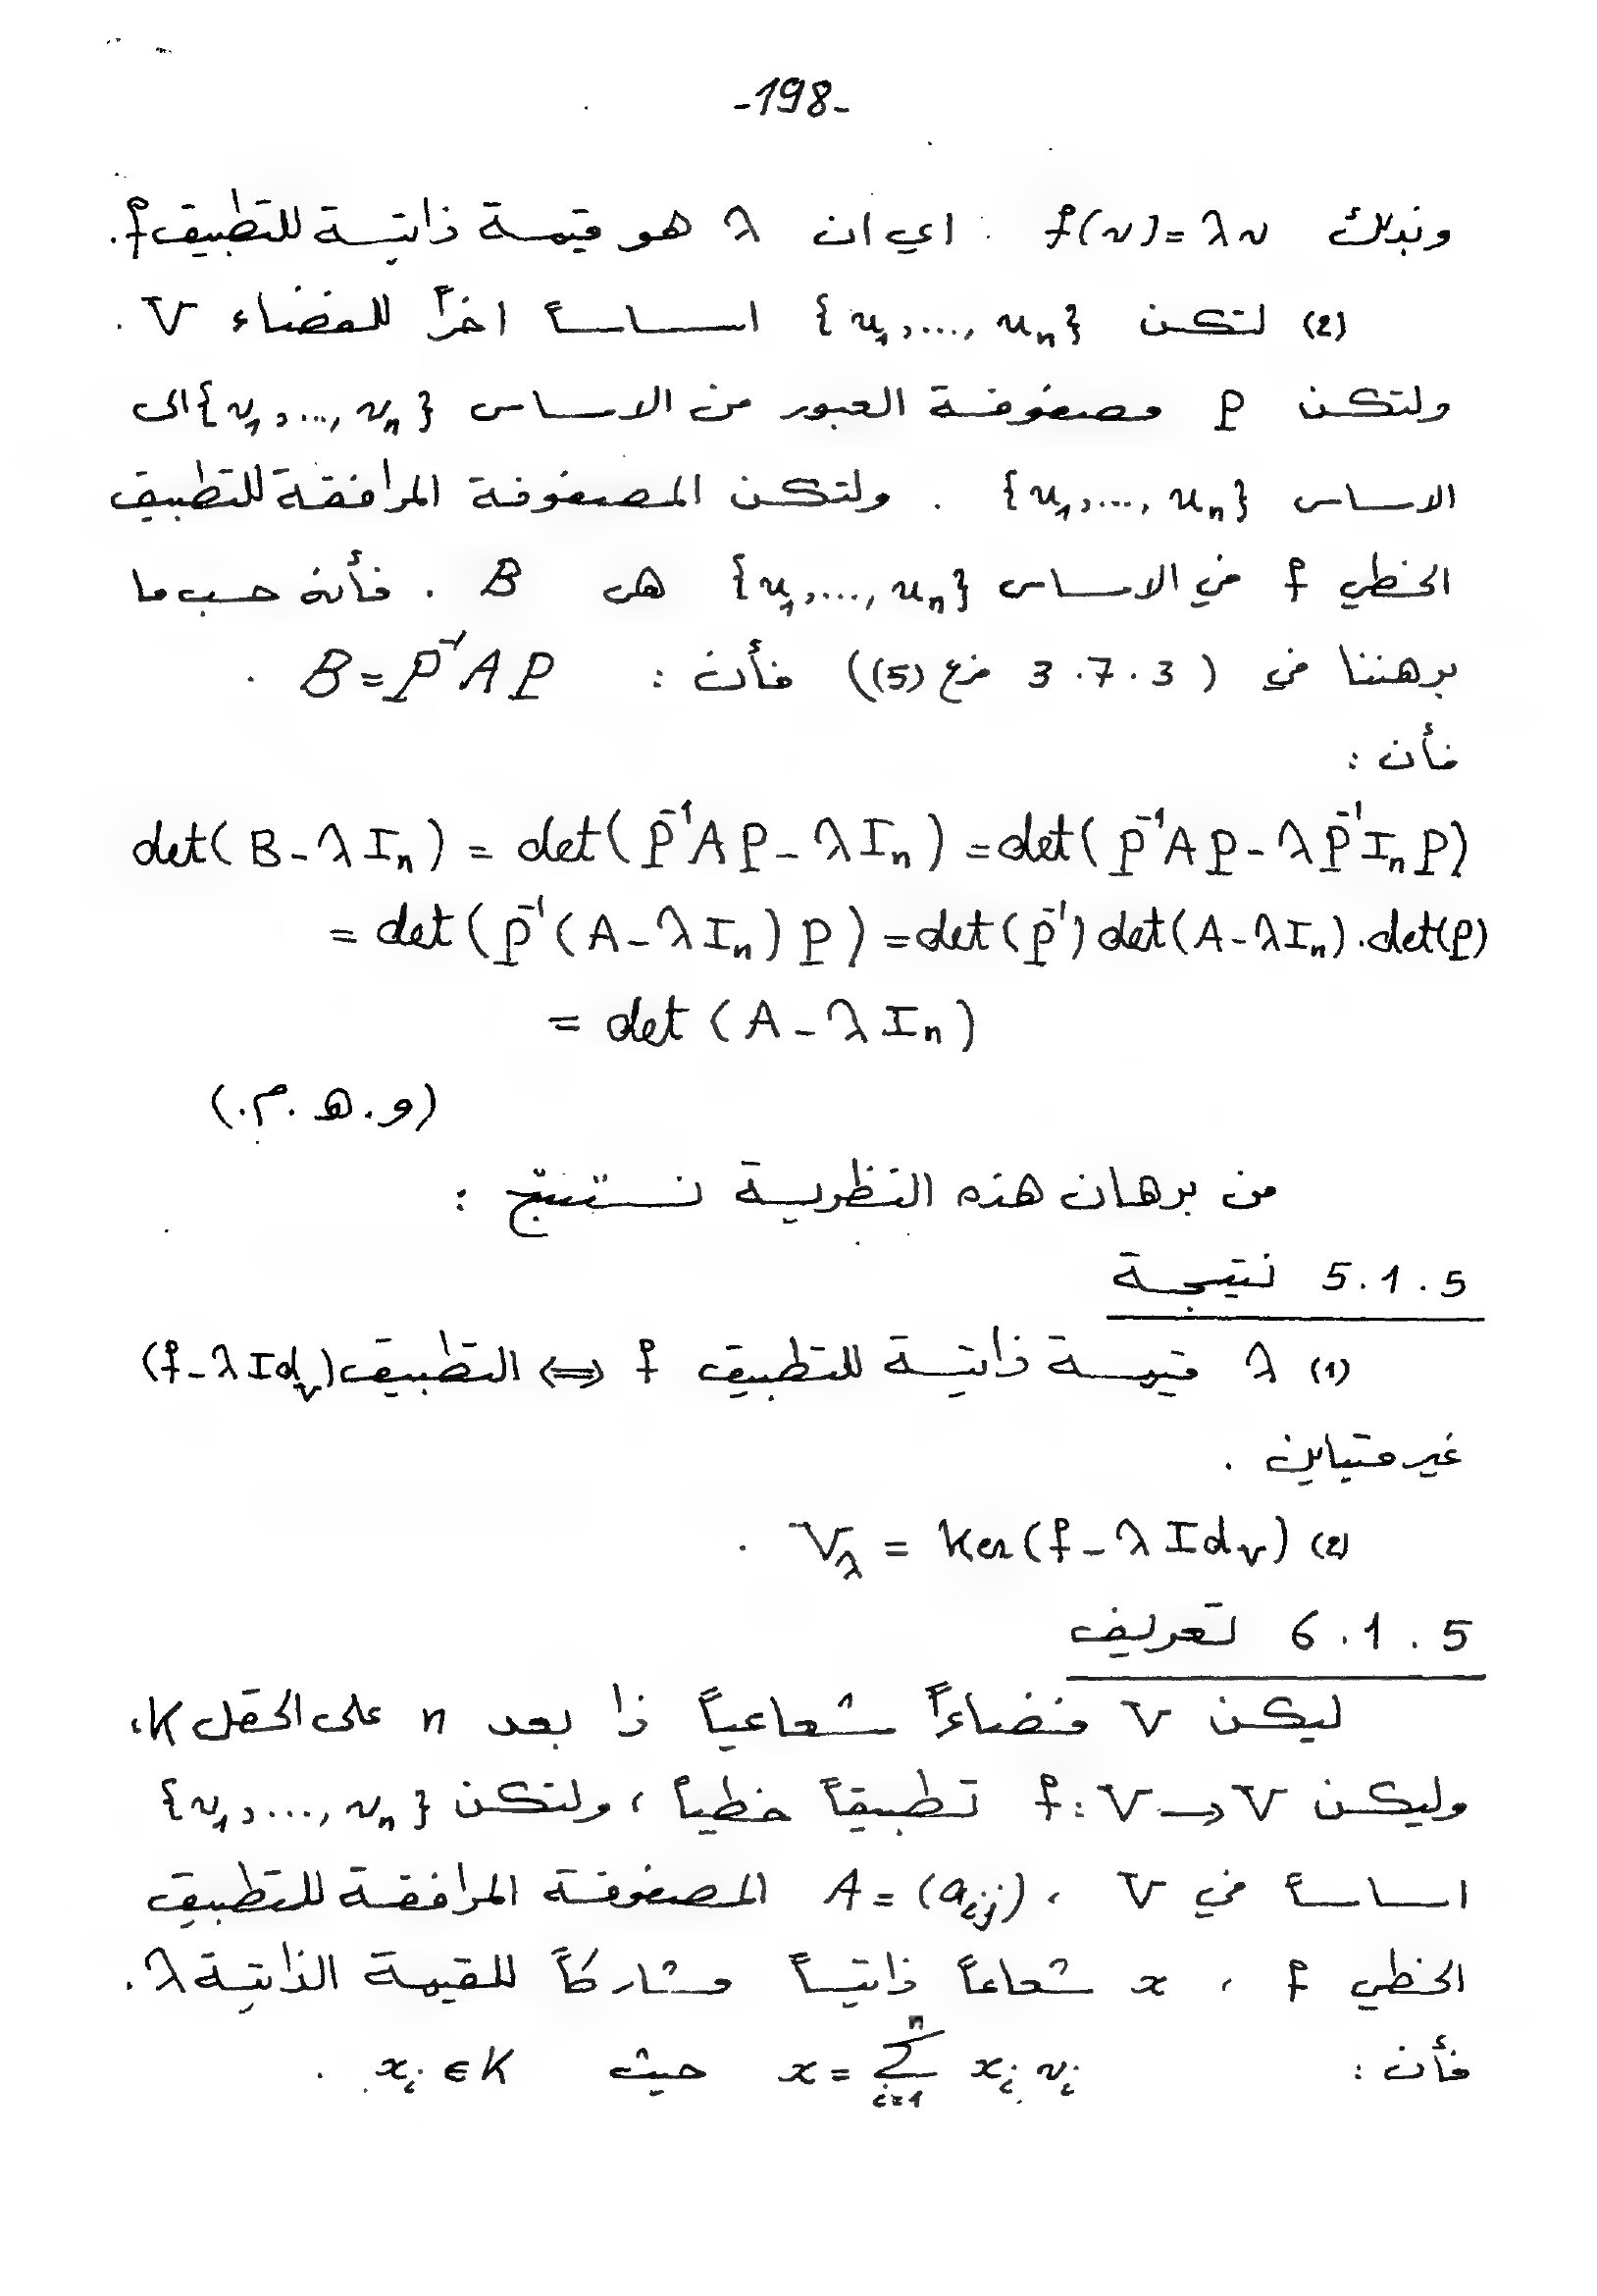 -198-
وبذلك f(v)=λv . اي ان λ هو قيمة ذاتية للتطبيق f.
(2) لتكن {u₁,...,uₙ} اساساً اخراً للفضاء V .
ولتكن P مصفوفة العبور من الاساس {v₁,...,vₙ} الى
الاساس {u₁,...,uₙ} . ولتكن المصفوفة المرافقة للتطبيق
الخطي f في الاساس {u₁,...,uₙ} هي B . فأنه حسب ما
برهننا في ( 3.7.3 فرع (5)) فأن : B=P⁻¹AP .
فأن :
det(B-λIₙ) = det(P⁻¹AP-λIₙ) = det(P⁻¹AP-λP⁻¹IₙP)
= det(P⁻¹(A-λIₙ)P) = det(P⁻¹)det(A-λIₙ).det(P)
= det(A-λIₙ)
(و.ه.م.)
من برهان هذه النظرية نستنتج :
5.1.5 نتيجة
(1) λ قيمة ذاتية للتطبيق f ⟺ التطبيق (f-λId_V)
غير متباين .
(2) V_λ = Ker(f-λId_V) .
6.1.5 تعريف
ليكن V فضاءاً شعاعياً ذا بعد n على الحقل K،
وليكن f:V→V تطبيقاً خطياً ، ولتكن {v₁,...,vₙ}
اساساً في V ، A=(aᵢⱼ) المصفوفة المرافقة للتطبيق
الخطي f ، x شعاعاً ذاتياً مشاركاً للقيمة الذاتية λ.
فأن : x=∑ⁿᵢ₌₁ xᵢvᵢ حيث xᵢ∈K .